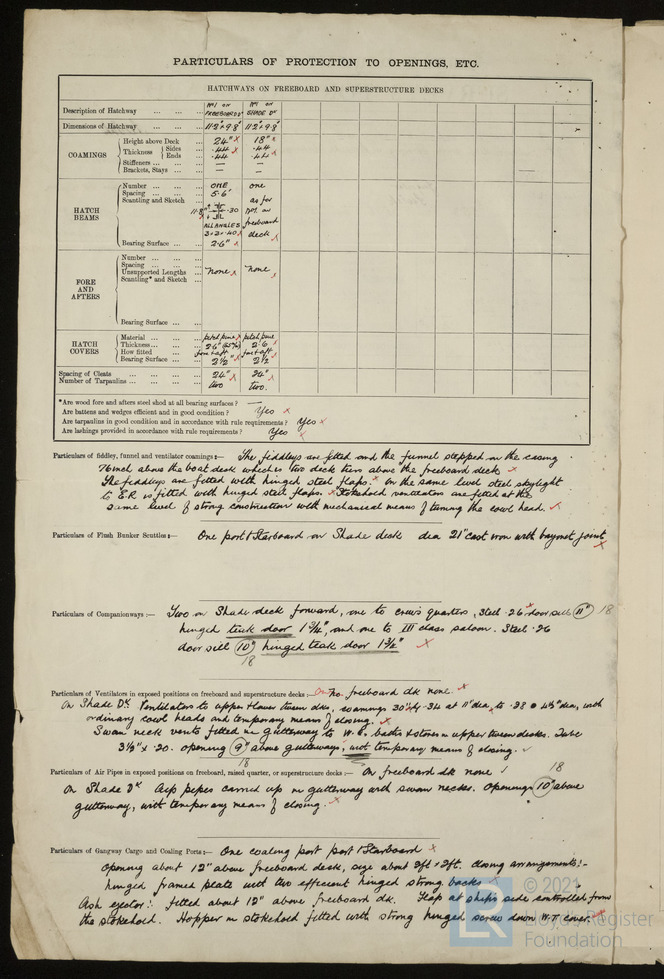 PARTICULARS OF PROTECTION TO OPENINGS, ETC.
HATCHWAYS ON FREEBOARD AND SUPERSTRUCTURE DECKS
Description of Hatchway ... ... ... No1 on FREEBOARD Dk No1 on SHADE Dk
Dimensions of Hatchway ... ... 11'.2"x9'.8" 11'.2"x9'.8"
COAMINGS
Height above Deck ... 24" x 18" x
Thickness { Sides .44 x .44
Ends .44 .44 x
Stiffeners ... ... ... — —
Brackets, Stays ... ... — —
HATCH BEAMS
Number ... ... ... ONE one
Spacing ... ... ... 5'.6"
Scantling and Sketch ... as for
11.8" .30 No1 on
ALL ANGLES freeboard
3x3x.40 x deck x
Bearing Surface ... ... 2.6" x
FORE AND AFTERS
Number ... ... ...
Spacing ... ... ...
Unsupported Lengths none x none x
Scantling* and Sketch ...
Bearing Surface ... ...
HATCH COVERS
Material ... ... ... pitch pine x pitch pine
Thickness ... ... ... 2.6" 2.6 x
How fitted ... ... fore & aft fore & aft
Bearing Surface ... ... 2½" x 2½ x
Spacing of Cleats ... ... ... ... 24" x 24" x
Number of Tarpaulins ... ... ... two two.
*Are wood fore and afters steel shod at all bearing surfaces? —
Are battens and wedges efficient and in good condition? Yes x
Are tarpaulins in good condition and in accordance with rule requirements? Yes x
Are lashings provided in accordance with rule requirements? Yes x
Particulars of fiddley, funnel and ventilator coamings:— The fiddleys are fitted and the funnel stepped on the casing
76 inch above the boat deck which is two deck tiers above the freeboard deck x
The fiddleys are fitted with hinged steel flaps. x On the same level steel skylight
to E.R is fitted with hinged steel flaps. x Stokehold ventilators are fitted at the
same level of strong construction with mechanical means of turning the cowl head. ✓
Particulars of Flush Bunker Scuttles:— One port & Starboard on Shade deck dia 21" cast iron with bayonet joint x
Particulars of Companionways:— Two on Shade deck forward, one to crew's quarters, steel .26 x door sill 11" 18
hinged teak door 1¾", and one to III class saloon. Steel .26
door sill 10", hinged teak door 1¾" x
18
Particulars of Ventilators in exposed positions on freeboard and superstructure decks:— On freeboard dk none. x
On Shade Dk Ventilators to upper & lower tween dks, coamings 30" high .34 at 11" dia, to .38 @ 4½" dia, with
ordinary cowl heads and temporary means of closing. x
Swan neck vents fitted in gutterway to W.C. baths & stores in upper tween decks. Tube
3½" x .20. opening 9" above gutterways, not temporary means of closing. ✓
18
Particulars of Air Pipes in exposed positions on freeboard, raised quarter, or superstructure decks:— On freeboard dk none 18
On Shade Dk Air pipes carried up in gutterway with swan necks. Openings 10" above
gutterway, with temporary means of closing. x
Particulars of Gangway Cargo and Coaling Ports:— One coaling port port & Starboard x
Opening about 12" above freeboard deck, size about 2ft x 2ft. closing arrangements:-
hinged framed plate with two efficient hinged strong backs
Ash ejector:- fitted about 12" above freeboard dk. Flap at ship's side controlled from
the stokehold. Hopper in stokehold fitted with strong hinged screw down W.T cover.
© 2021
LR Lloyd's Register
Foundation